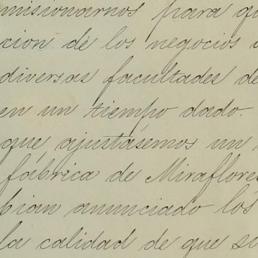 misionarnos para q
cion de los negocios
diversas facultades de
en un tiempo dado.
que ajustásemos un
fábrica de Miraflores
bian anunciado los
la calidad de que si